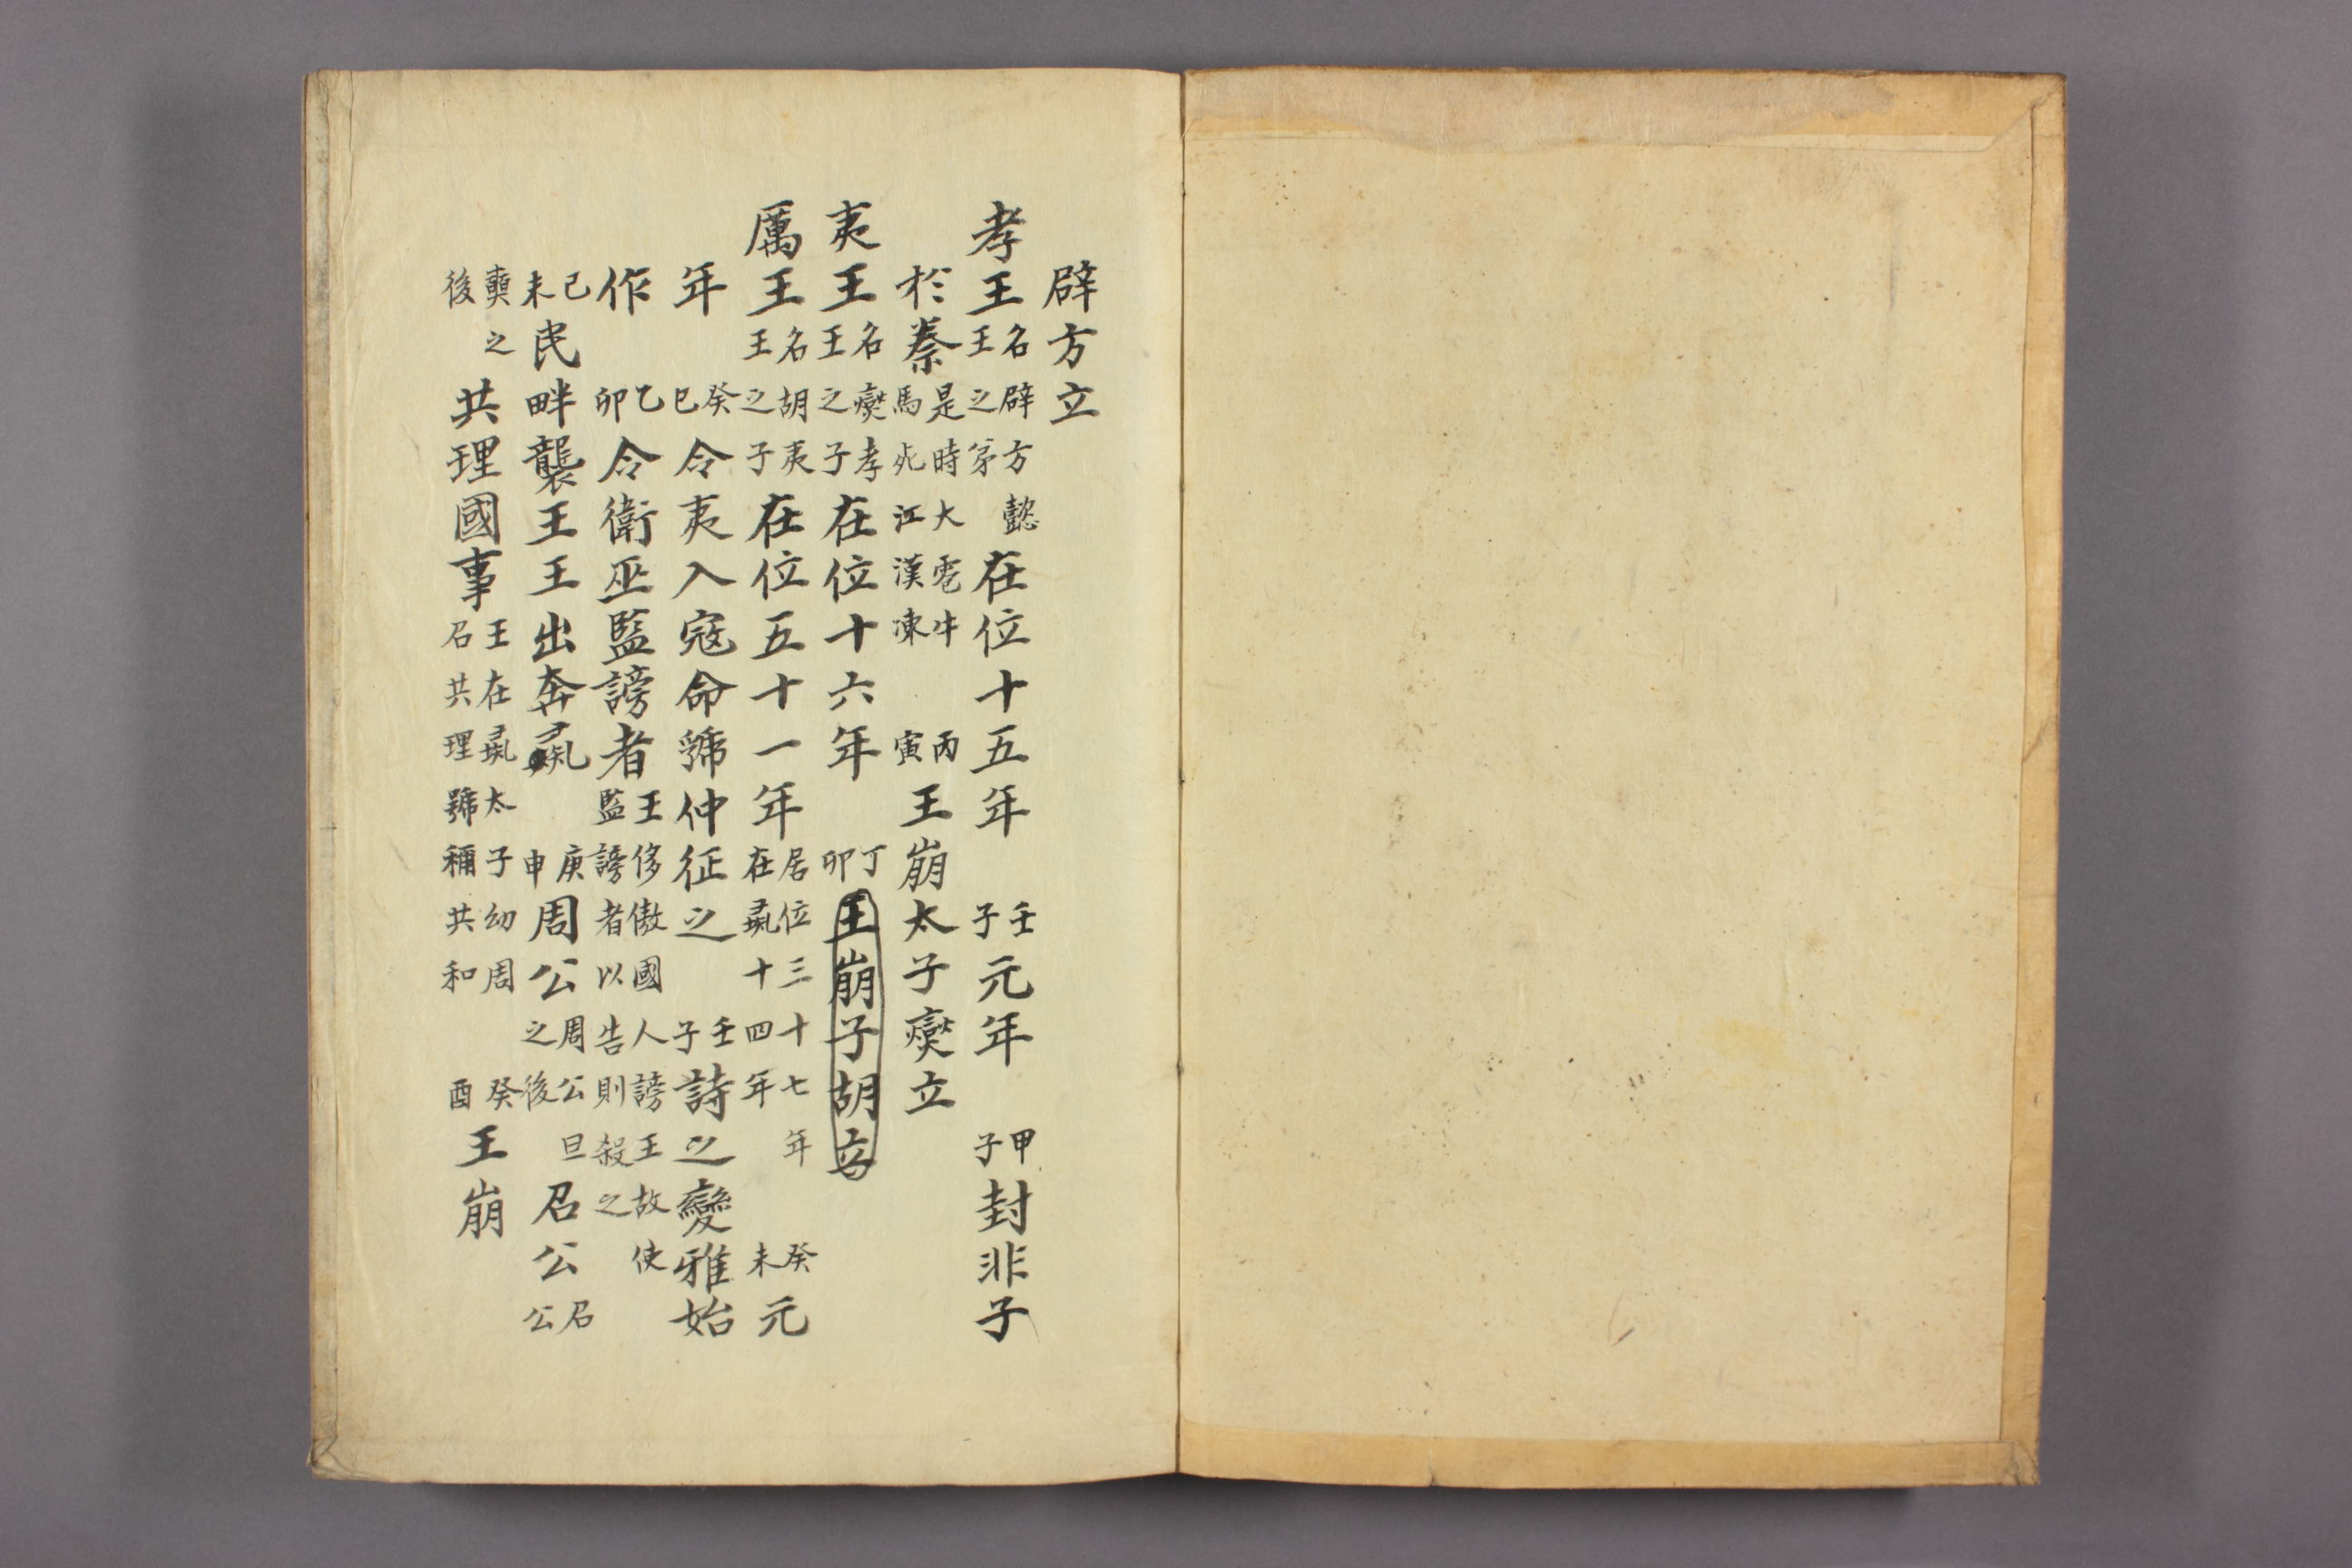 辟方立
孝王名辟方懿王之弟在位十五年壬子元年甲子封非子
於秦是時大雹牛馬死江漢凍丙寅王崩太子燮立
夷王名燮孝王之子在位十六年丁卯王崩子胡立
厲王名胡夷王之子在位五十一年居位三十七年在彘十四年癸未元
年癸巳令夷入寇命號仲征之壬子詩之變雅始
作乙卯令衛巫監謗者王侈傲國人謗王故使監謗者以告則殺之
己未民畔襲王王出奔彘庚申周公周公旦之後召公召公
奭之後共理國事王在彘太子幼周召共理號稱共和癸酉王崩